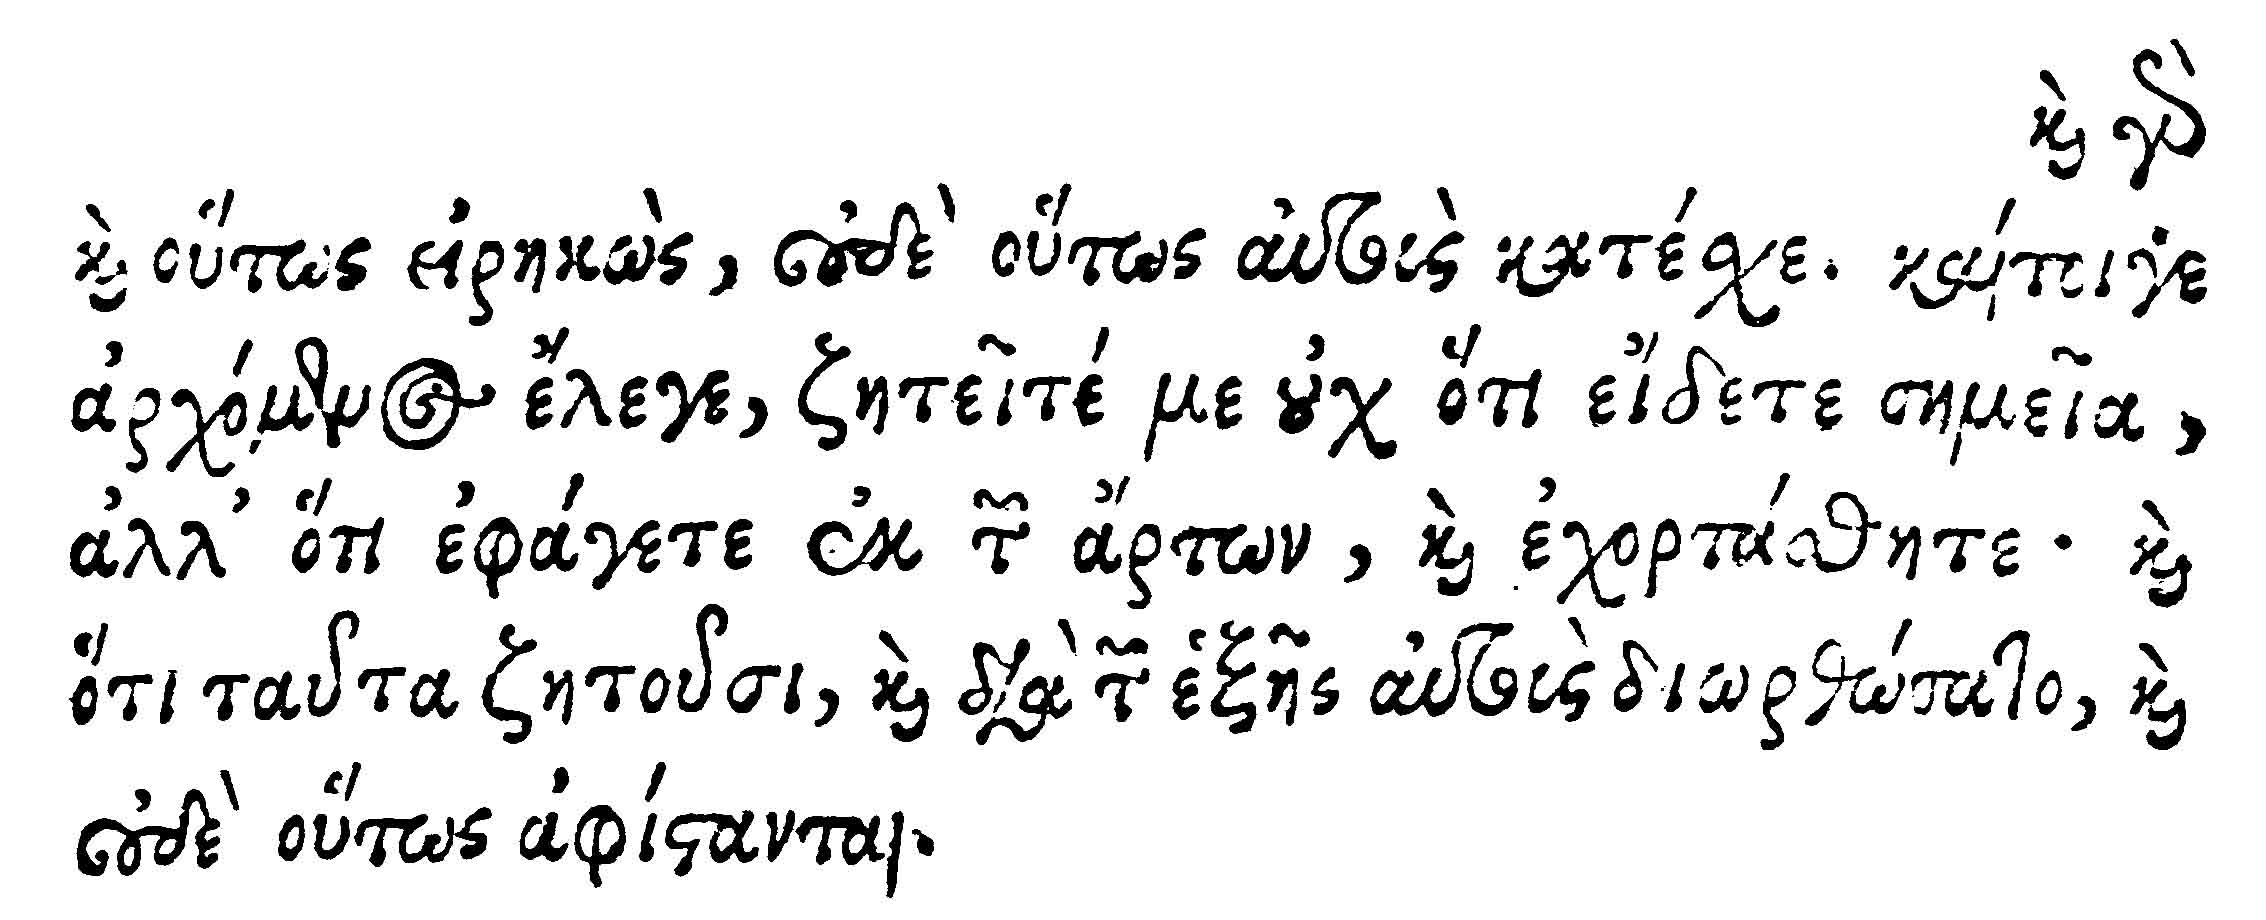 καὶ γὰρ
καὶ οὕτως εἰρηκὼς, οὐδὲ οὕτως αὐθις κατέχε. καίτοιγε
ἀρχόμενος ἔλεγε, ζητεῖτέ με οὐχ ὅτι εἴδετε σημεῖα,
ἀλλ' ὅτι ἐφάγετε ἐκ τῶν ἄρτων, καὶ ἐχορτάσθητε· καὶ
ὅτι ταῦτα ζητοῦσι, καὶ διὰ τῶν ἑξῆς αὐθις διωρθώσατο, καὶ
οὐδὲ οὕτως ἀφίστανται.